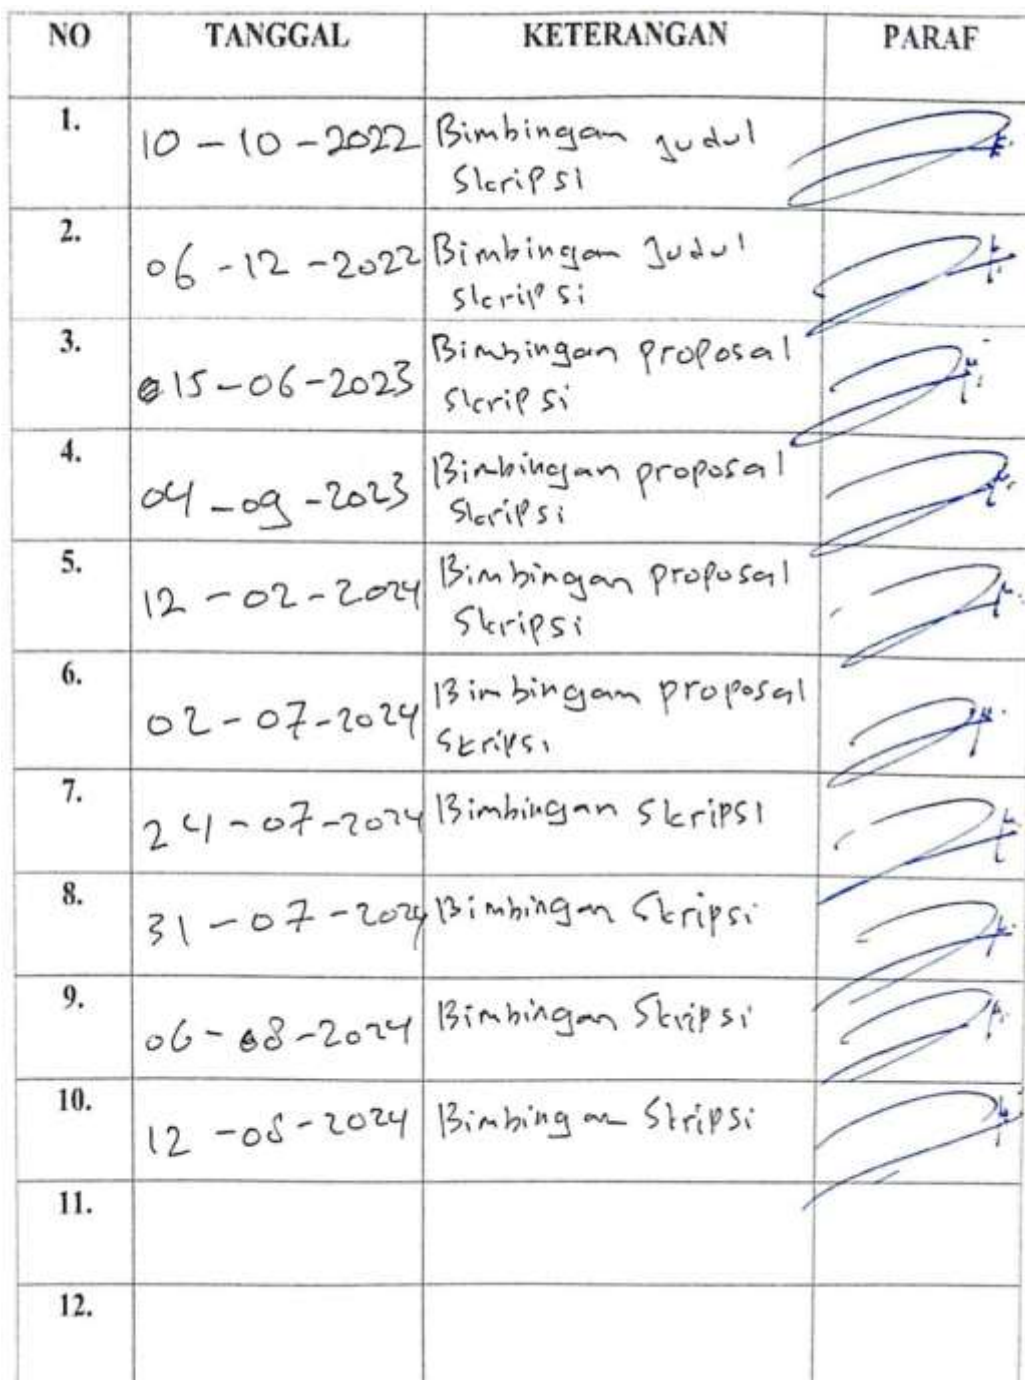 NO TANGGAL KETERANGAN PARAF
1. 10-10-2022 Bimbingan judul
Skripsi
2. 06-12-2022 Bimbingan Judul
Skripsi
3. 15-06-2023 Bimbingan proposal
Skripsi
4. 04-09-2023 Bimbingan proposal
Skripsi
5. 12-02-2024 Bimbingan proposal
Skripsi
6. 02-07-2024 Bimbingan proposal
Skripsi
7. 24-07-2024 Bimbingan Skripsi
8. 31-07-2024 Bimbingan Skripsi
9. 06-08-2024 Bimbingan Skripsi
10. 12-08-2024 Bimbingan Skripsi
11.
12.